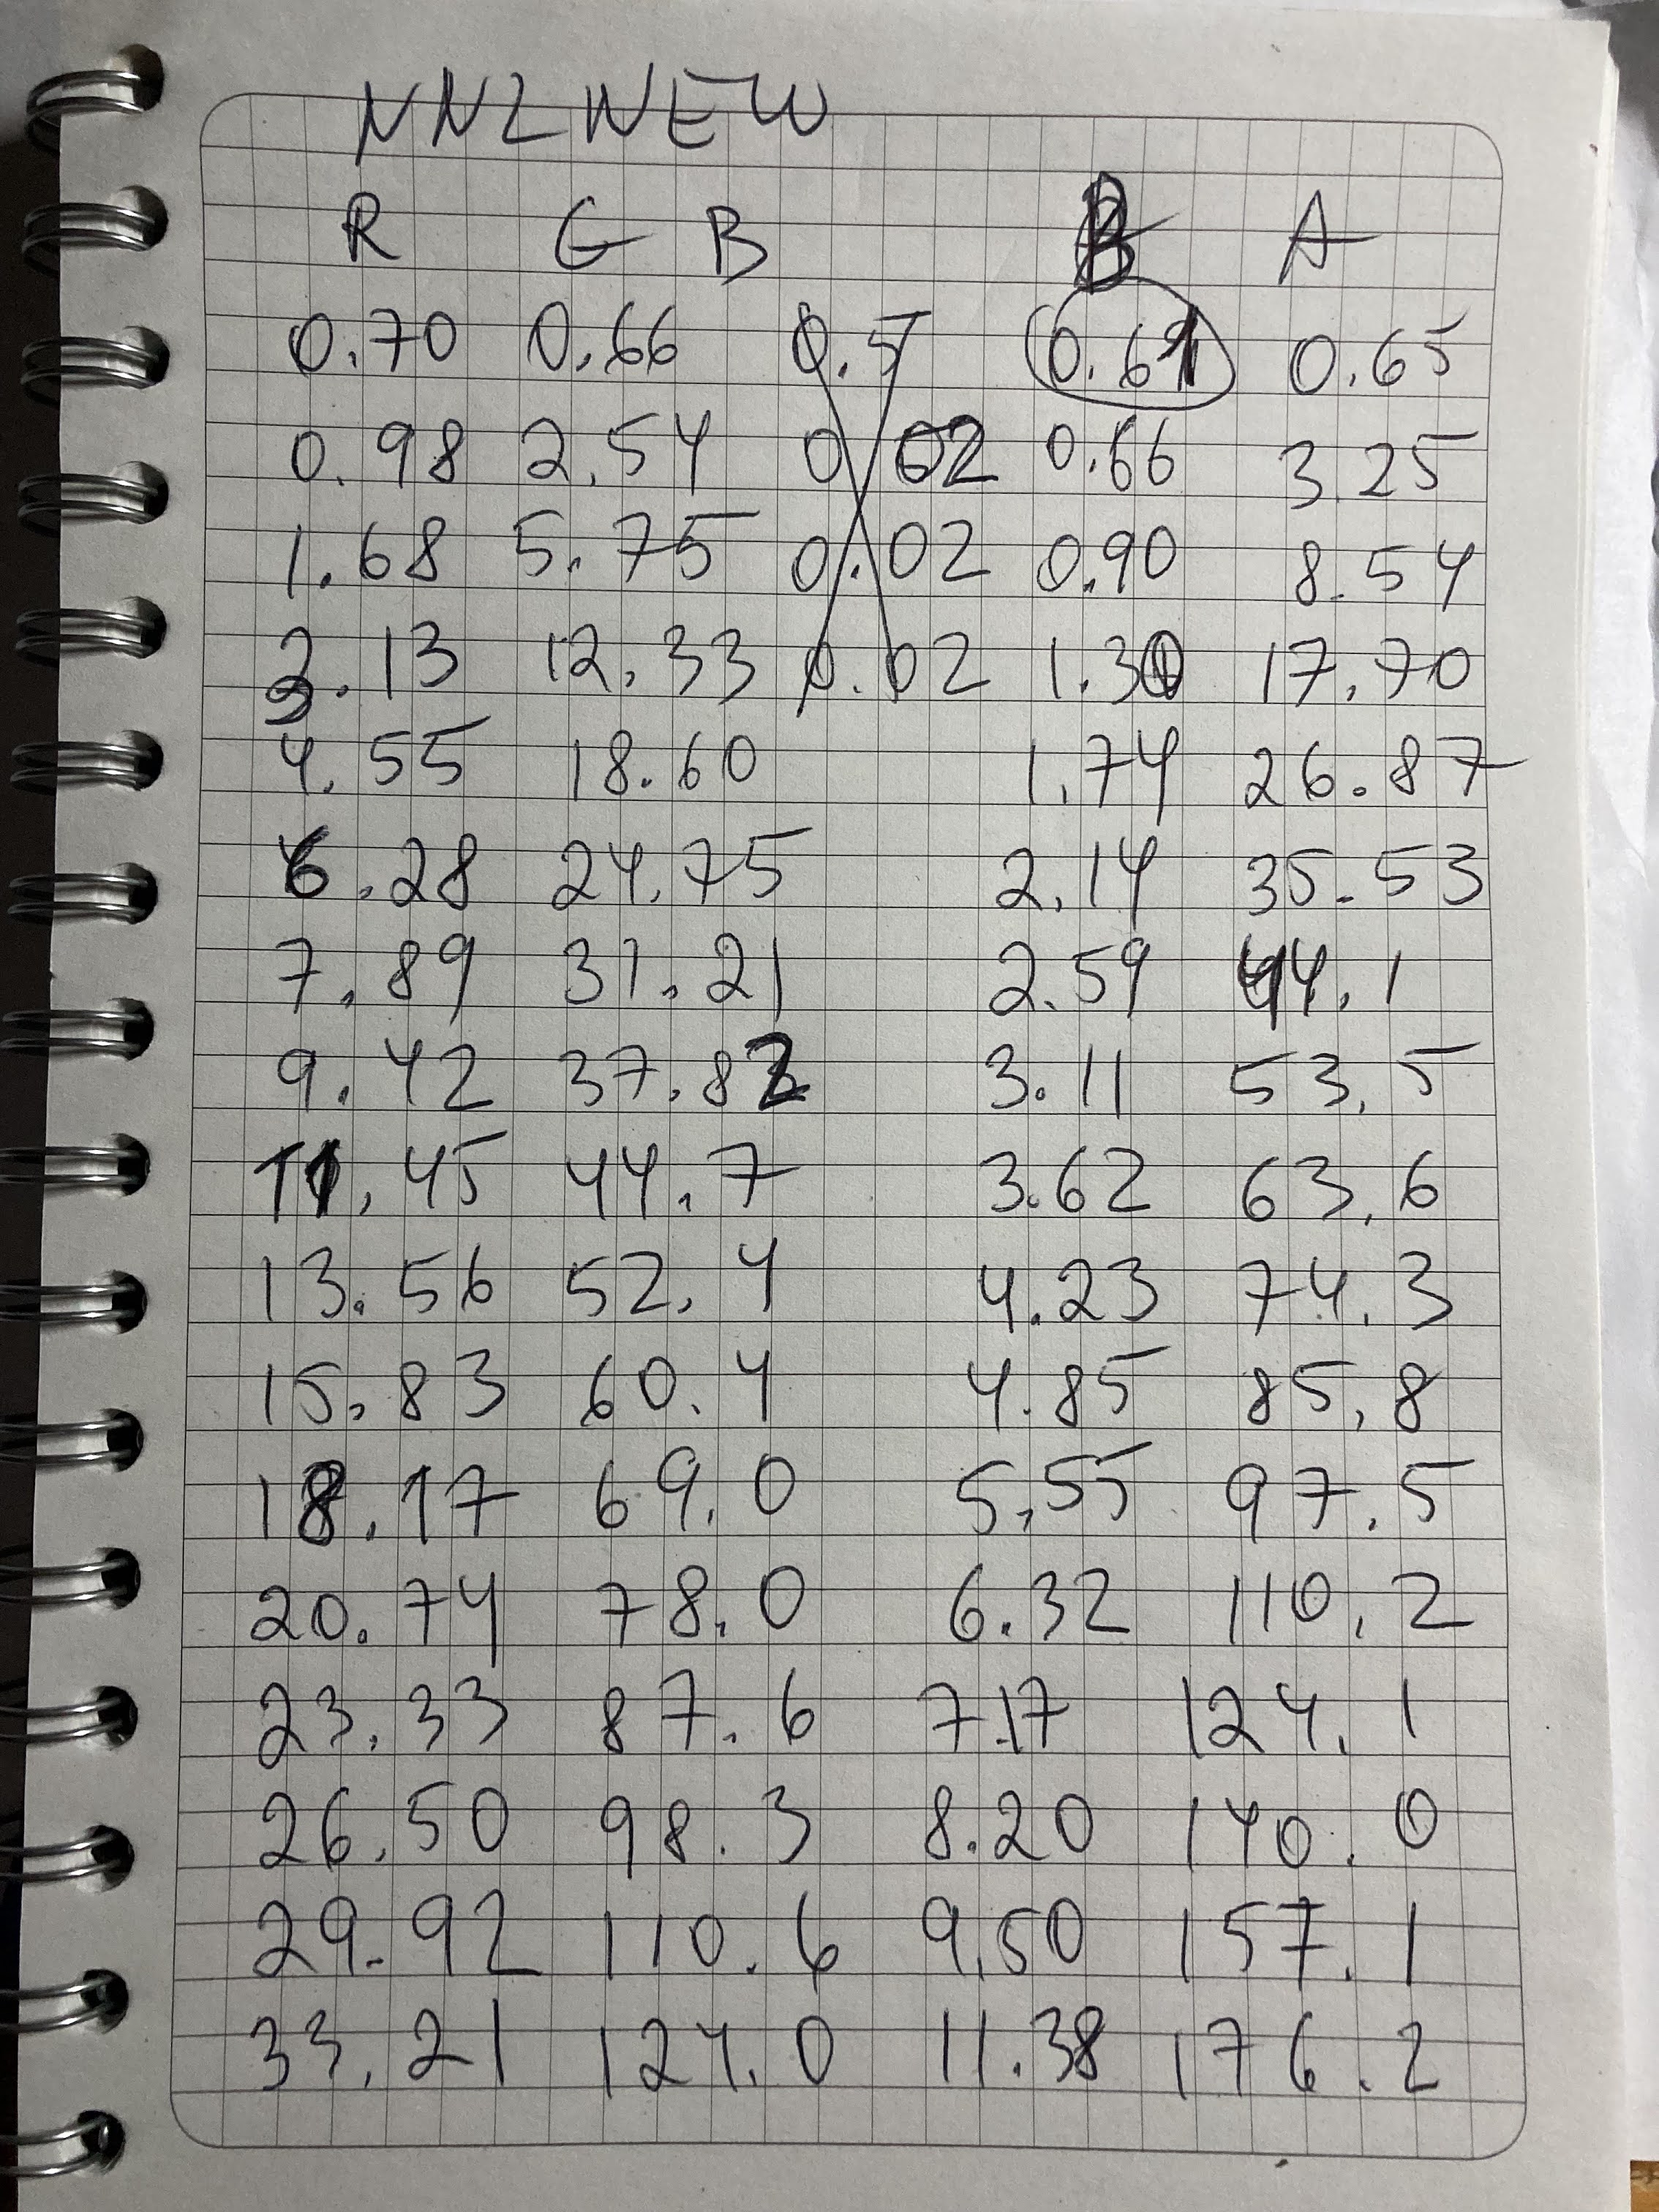 NNLNEW
R G B B A
0.70 0.66 0.5 0.61 0.65
0.98 2.54 0.02 0.66 3.25
1.68 5.75 0.02 0.90 8.54
12.33 0.02 1.30 17.70
4.55 18.60 1.74 26.87
6.28 24.75 2.14 35.53
7.89 31.21 2.59 44.1
9.42 37.82 3.11 53.5
11.45 44.7 3.62 63.6
13.56 52.4 4.23 74.3
15.83 60.4 4.85 85.8
18.17 69.0 5.55 97.5
20.74 78.0 6.32 110.2
23.33 87.6 7.17 124.1
26.50 98.3 8.20 140.0
29.92 110.6 9.50 157.1
33.21 124.0 11.38 176.2